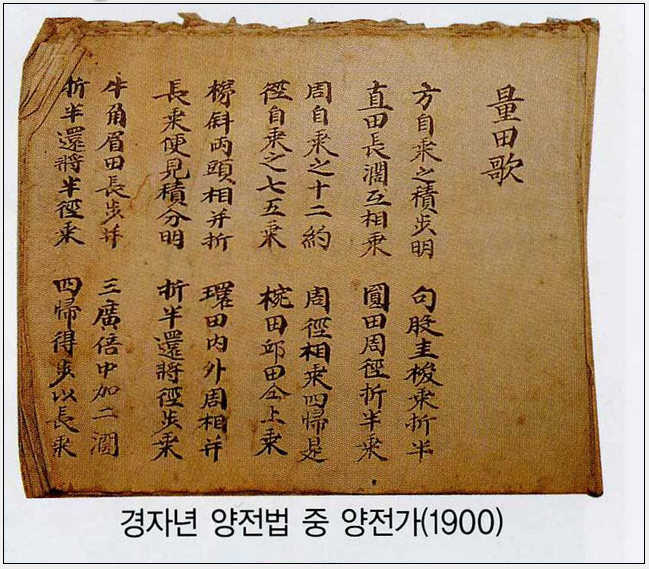 量田歌
方自乘之積步明 句股圭梭乘折半
直田長濶互相乘 圓田周徑折半乘
周自乘之十二約 周徑相乘四歸是
徑自乘之七五乘 椀田邱田仝上乘
梯斜両頭相并折 環田内外周相并
長乘便見積分明 折半還將徑步乘
牛角眉田長步并 三廣倍中加二濶
折半還將半徑乘 四歸得步以長乘
경자년 양전법 중 양전가(1900)